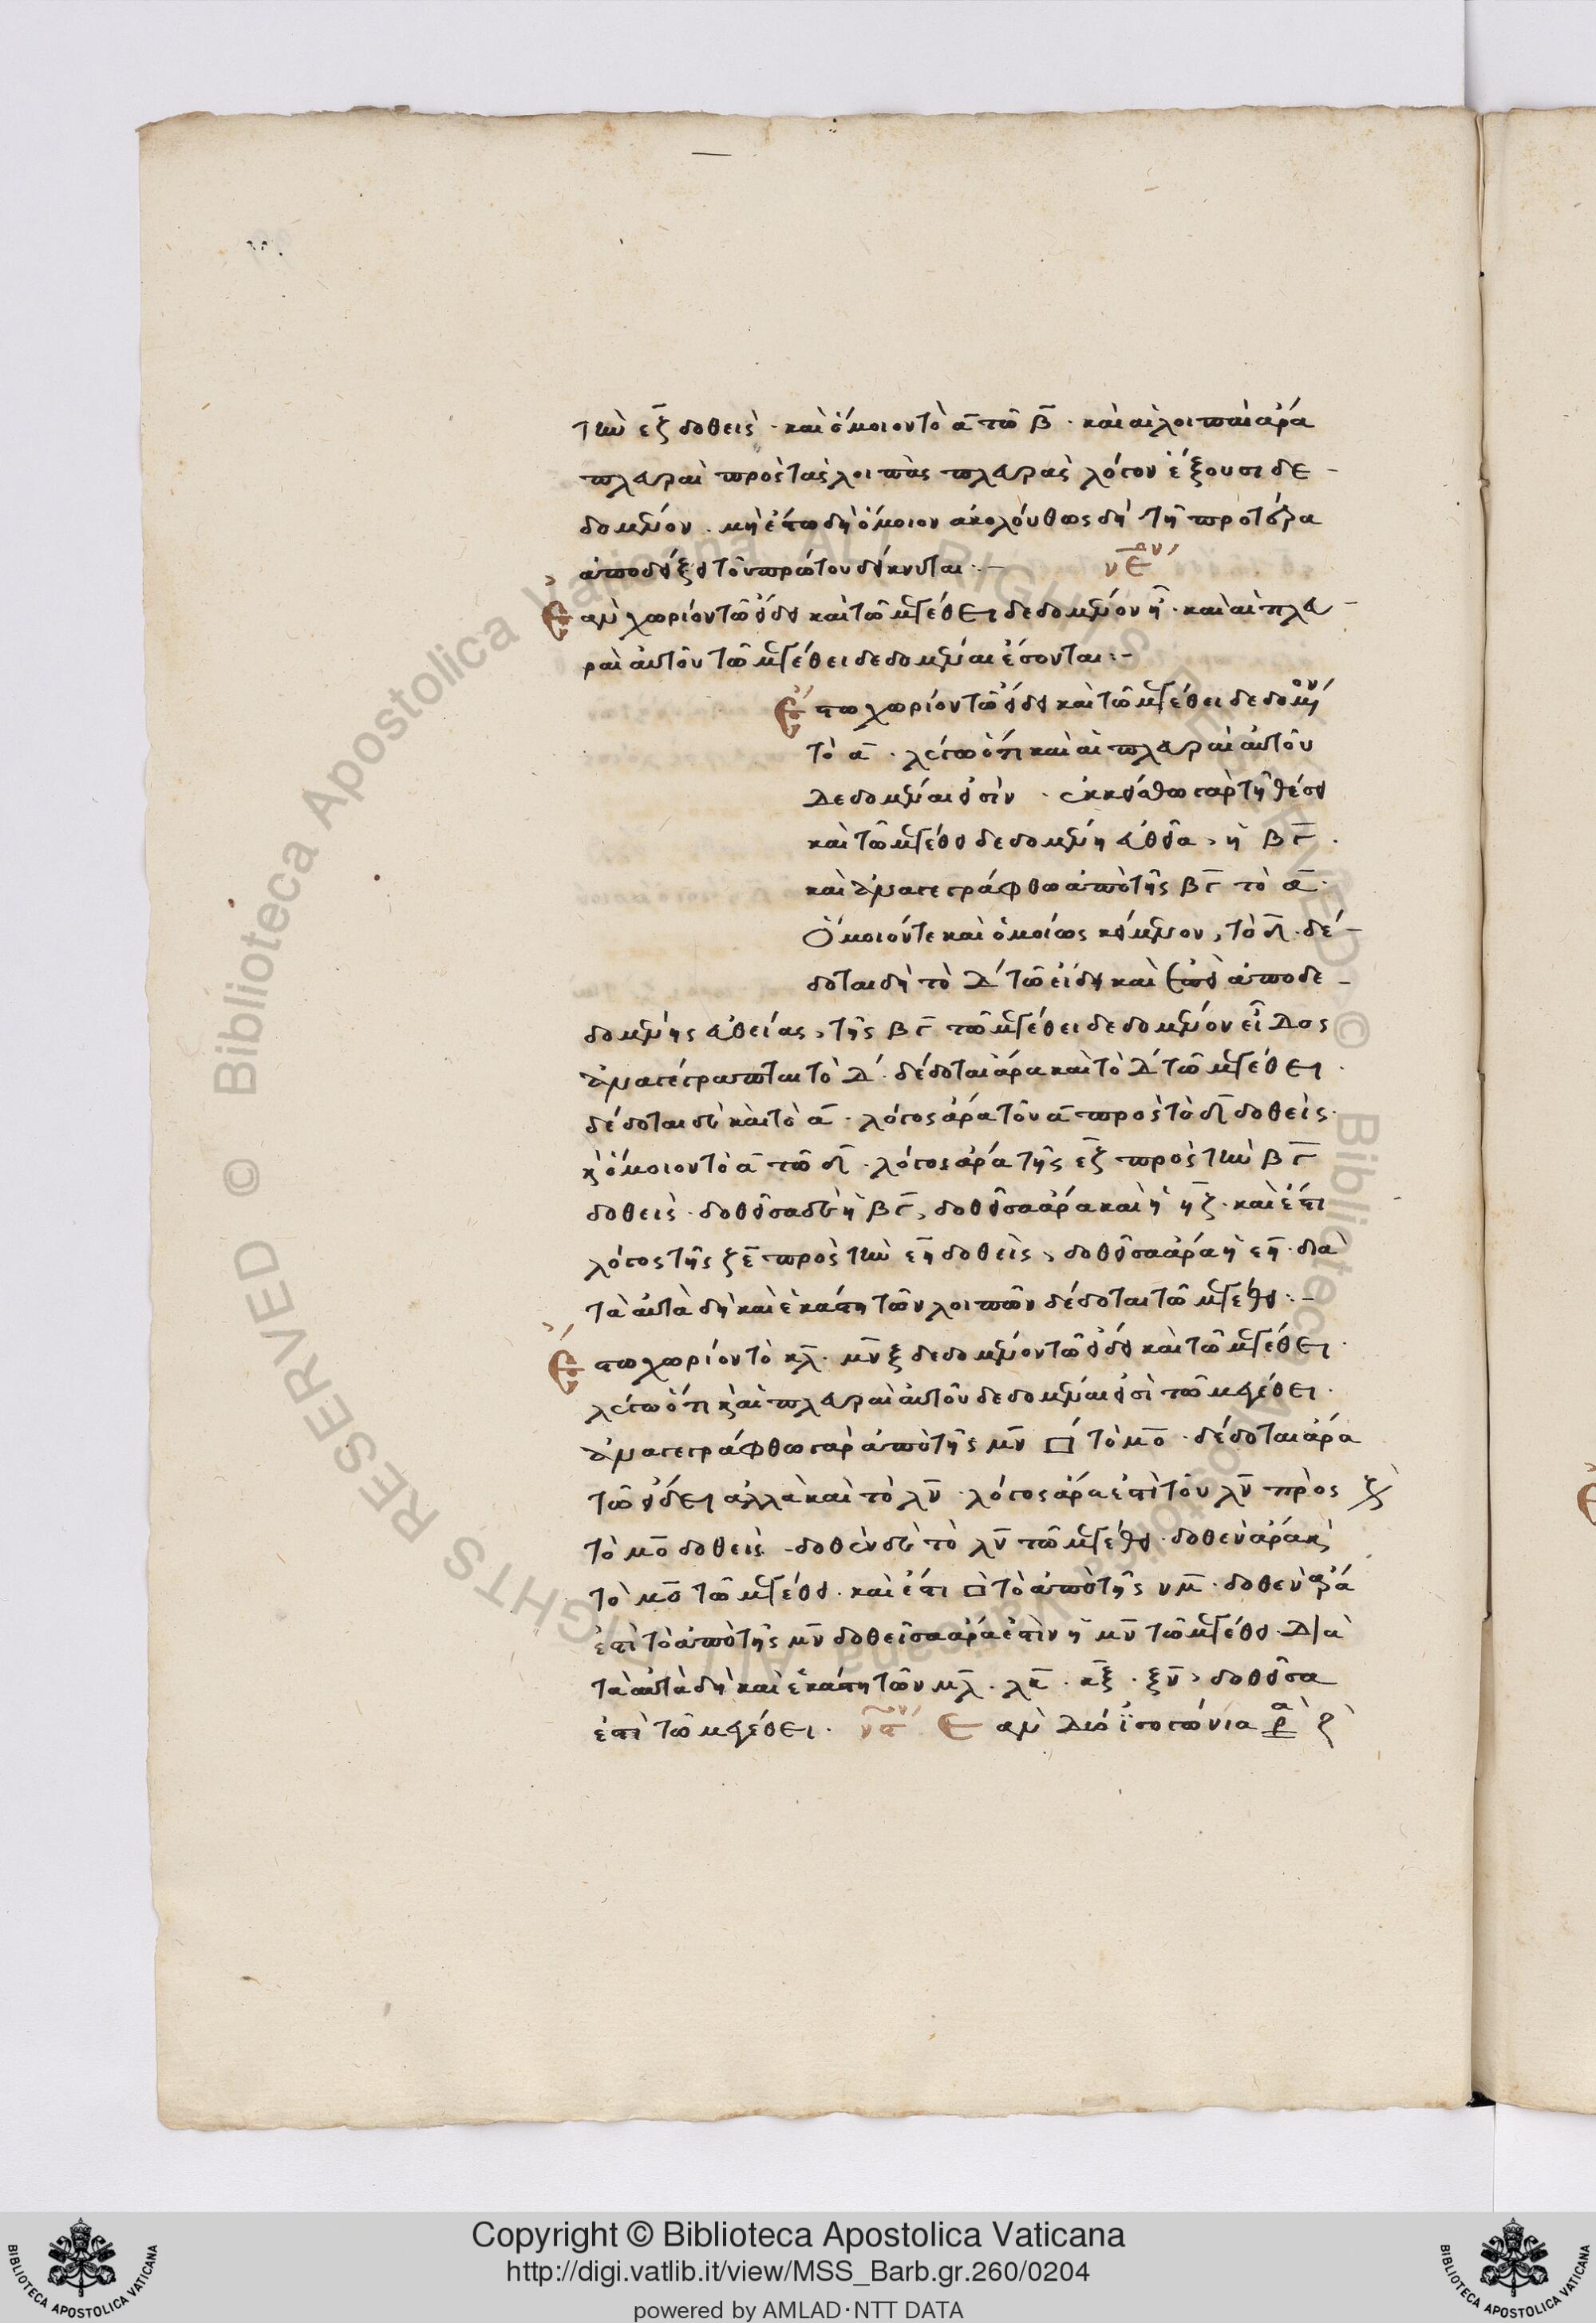 τὴν εζ δοθείς · καὶ ὅμοιον τὸ α τῷ β · καὶ αἱ λοιπαὶ ἄρα
πλευραὶ πρὸς τὰς λοιπὰς πλευρὰς λόγον ἕξουσι δε-
δομένον · μὴ ἔστω δὴ ὅμοιον ἀκολούθως δὴ τῇ προτέρα
ἀποδείξει τοῦ πρώτου δείκνυται :-
νε
Ἐὰν χωρίον τῷ εἴδει καὶ τῷ μεγέθει δεδομένον ᾖ · καὶ αἱ πλευ-
ραὶ αὐτοῦ τῷ μεγέθει δεδομέναι ἔσονται :-
Ἔστω χωρίον τῷ εἴδει καὶ τῷ μεγέθει δεδομένον
τὸ α · λέγω ὅτι καὶ αἱ πλευραὶ αὐτοῦ
δεδομέναι εἰσὶν · ἐκκείσθω γὰρ τῇ θέσει
καὶ τῷ μεγέθει δεδομένη εὐθεῖα, ἡ βγ ·
καὶ ἀναγεγράφθω ἀπὸ τῆς βγ τὸ α ·
Ὅμοιόν τε καὶ ὁμοίως κείμενον, τὸ δ · δέ-
δοται δὴ τὸ δ τῷ εἴδει καὶ ἐπεὶ ἀπο δε-
δομένης εὐθείας, τῆς βγ τῷ μεγέθει δεδομένον εἶδος
ἀναγέγραπται τὸ δ · δέδοται ἄρα καὶ τὸ δ τῷ μεγέθει ·
δέδοται δὲ καὶ τὸ α · λόγος ἄρα τοῦ α πρὸς τὸ δ δοθείς ·
κ ὅμοιον τὸ α τῷ δ · λόγος ἄρα τῆς εζ πρὸς τὴν βγ
δοθείς · δοθεῖσα δὲ ἡ βγ, δοθεῖσα ἄρα καὶ ἡ ηζ · καὶ ἔστι
λόγος τῆς ζε πρὸς τὴν εη δοθεὶς, δοθεῖσα ἄρα ἡ εη · διὰ
τὰ αὐτὰ δὴ καὶ ἑκάστη τῶν λοιπῶν δέδοται τῷ μεγέθει :-
Ἔστω χωρίον τὸ κλ · μν ξ δεδομένον τῷ εἴδει καὶ τῷ μεγέθει ·
λέγω ὅτι κ αἱ πλευραὶ αὐτοῦ δεδομέναι εἰσὶ τῷ μεγέθει ·
ἀναγεγράφθω γὰρ ἀπὸ τῆς μν □ τὸ μο · δέδοται ἄρα
τῷ εἴδει ἀλλὰ καὶ τὸ λν · λόγος ἄρα ἐστὶ τοῦ λν πρὸς
τὸ μο δοθείς · δοθὲν δὲ τὸ λν τῷ μεγέθει · δοθὲν ἄρα κ
τὸ μο τῷ μεγέθει · καὶ ἔστι □ τὸ ἀπὸ τῆς νμ · δοθὲν ἄρα
ἐστὶ τὸ ἀπὸ τῆς μν δοθεῖσα ἄρα ἐστὶν ἡ μν τῷ μεγέθει · Διὰ
τὰ αὐτὰ δὴ καὶ ἑκάστη τῶν μλ · λκ · κξ · ξν, δοθεῖσα
ἐστὶ τῷ μεγέθει · Ἐὰν δύο ἰσογώνια
Copyright © Biblioteca Apostolica Vaticana
http://digi.vatlib.it/view/MSS_Barb.gr.260/0204
powered by AMLAD·NTT DATA